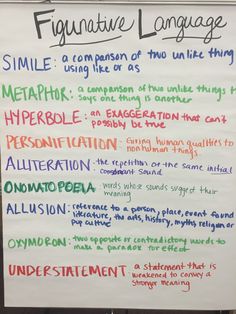 Figurative Language
SIMILE: a comparison of two unlike thing
using like or as
METAPHOR: a comparison of two unlike things t
says one thing is another
HYPERBOLE: an EXAGGERATION that can't
possibly be true
PERSONIFICATION: Giving human qualities to
nonhuman things.
ALLITERATION: the repetition of the same initial
consonant sound
ONOMATOPOEIA: words whose sounds suggest their
meaning
ALLUSION: reference to a person, place, event found
literature, the arts, history, myths religion or
pop culture
OXYMORON: two opposite or contradictory words to
make a paradox for effect
UNDERSTATEMENT: a statement that is
weakened to convey a
stronger meaning